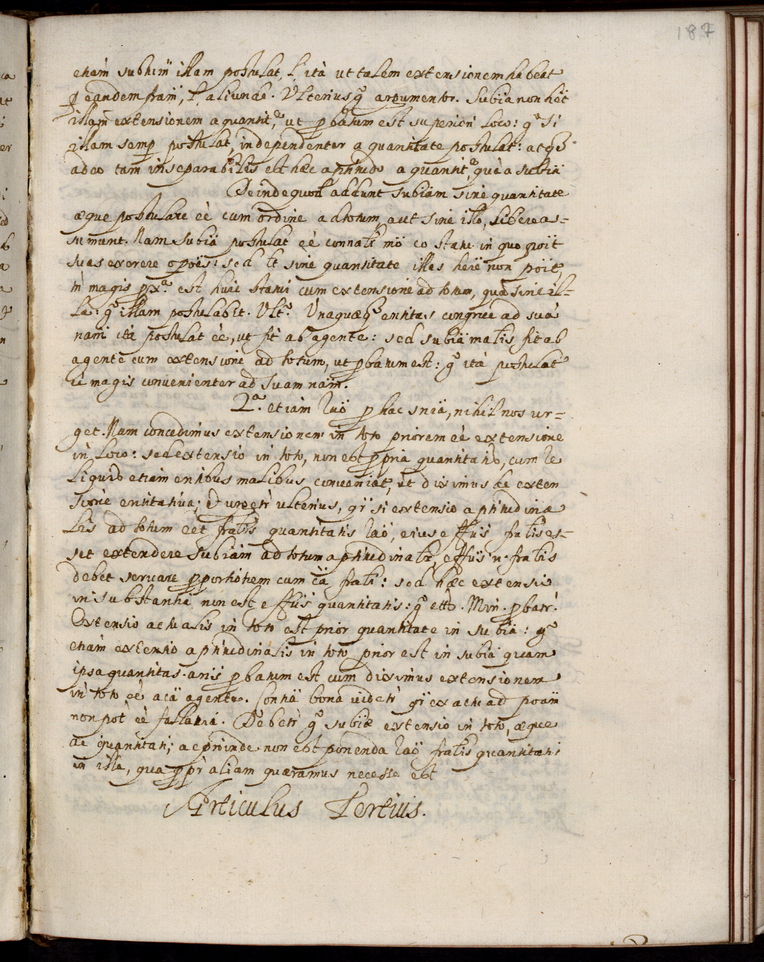 187
etiam subiūm illam postulat, l. ità ut talem extensionem habeat
eandem fram̄, l. aliunde. Ulterius argumentor. Subia non hēt
illam extensionem a quantit.e ut pbatum est superiori Loco: g.o si
illam semp postulat, independenter a quantitate postulat: atq̄
adeo tam inseparabilis est hæc aptitudo a quantit.e quā a substīa
Deinde quod addunt subiam sine quantitate
æque postulare eē cum ordine ad totum, aut sine illo, libere as-
sumunt. Nam subia postulat eē connali mō eo statu in quo poīt
suas exercere opōes: sed lt sine quantitate illas
magis px.a est huic statui cum extensione ad totum, quā sine il-
la: g.o illam postulabit. Ult.o Unaquæq̄ entitas congrue ad suā
nam̄ ita postulat eē, ut fit ab agente: sed subia malis fit ab
agente cum extensione ad totum, ut pbatum est: g.o ita postulat
eē magis convenienter ad suam nam̄.
2.a etiam raō p hac sniā, nihil nos ur-
get. Nam concedimus extensionem in toto priorem eē extensione
in Loco: sed extensio in toto, non est ppria quantitatis, cum re
liquis etiam entibus malibus conveniat, ut diximus de exten
sione entitativa; et urgeri ulterius, q̄ si extensio aptitudina
lis ad totum eēt fralis quantitatis raō, eius effūs fralis es-
set extendere subiam ad totum aptitudinalr, effūs n. fralis
debet servare pportionem cum cā frali: sed hæc extensio
in substantia non est effūs quantitatis: g.o etc. Min. pbatr.
Extensio actualis in toto est prior quantitate in subia: g.o
etiam extensio aptitudinalis in toto prior est in subia quam
ipsa quantitas. anīs pbatum est cum diximus extensionem
in toto eē acā agente. Contīa bona videtr q̄ ex actu ad poam̄
non pot eē fallatia. Debetr g.o subiæ extensio in toto, æque
ac quantitati; ac proinde non est ponenda raō fralis quantitatis
in illa, qua pp̄r aliam quæramus necesse est
Articulus Tertius.